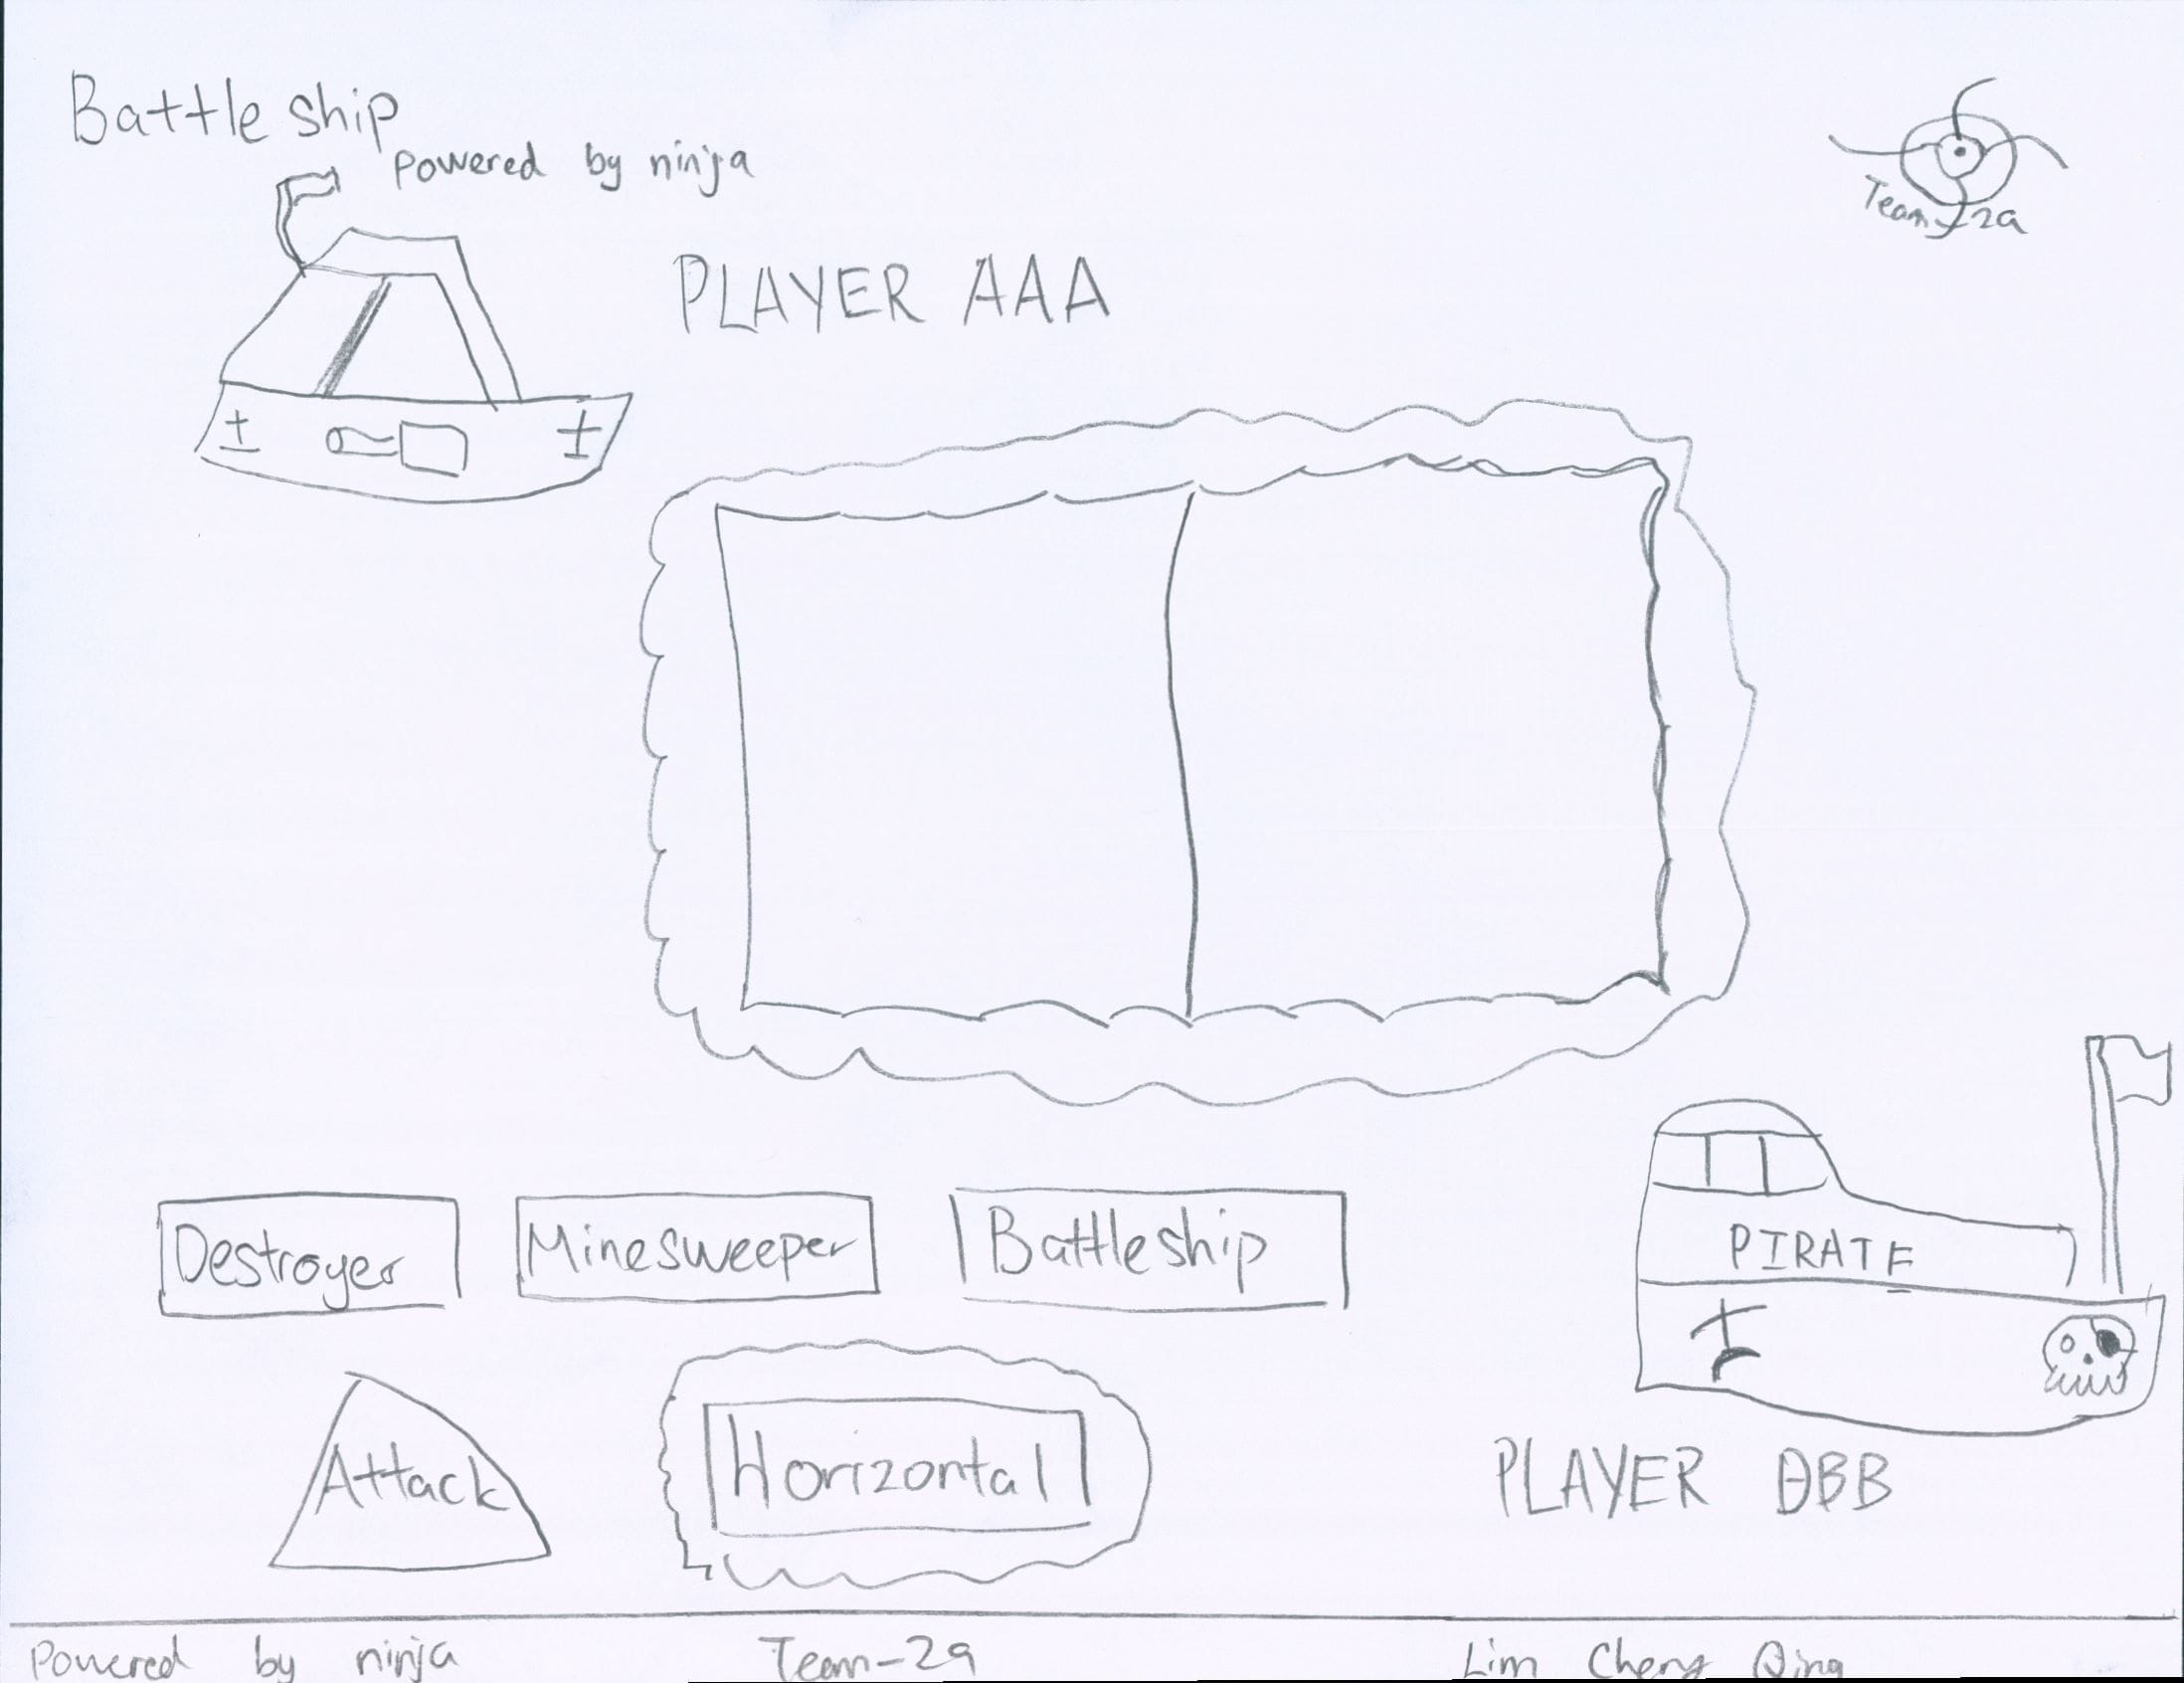 Battleship
Powered by ninja
Team-2a
PLAYER AAA
PIRATE
Destroyer
Minesweeper
Battleship
Attack
Horizontal
PLAYER BBB
Powered by ninja
Team-2a
Lim Cheng Qing